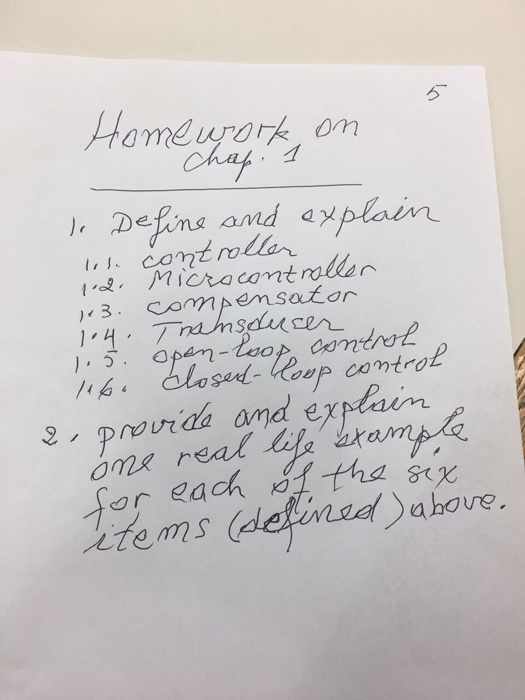 5
Homework on
chap. 1
1. Define and explain
1.1. controller
1.2. Microcontroller
1.3. compensator
1.4. Transducer
1.5. open-loop control
1.6. closed-loop control
2. provide and explain
one real life example
for each of the six
items (defined) above.